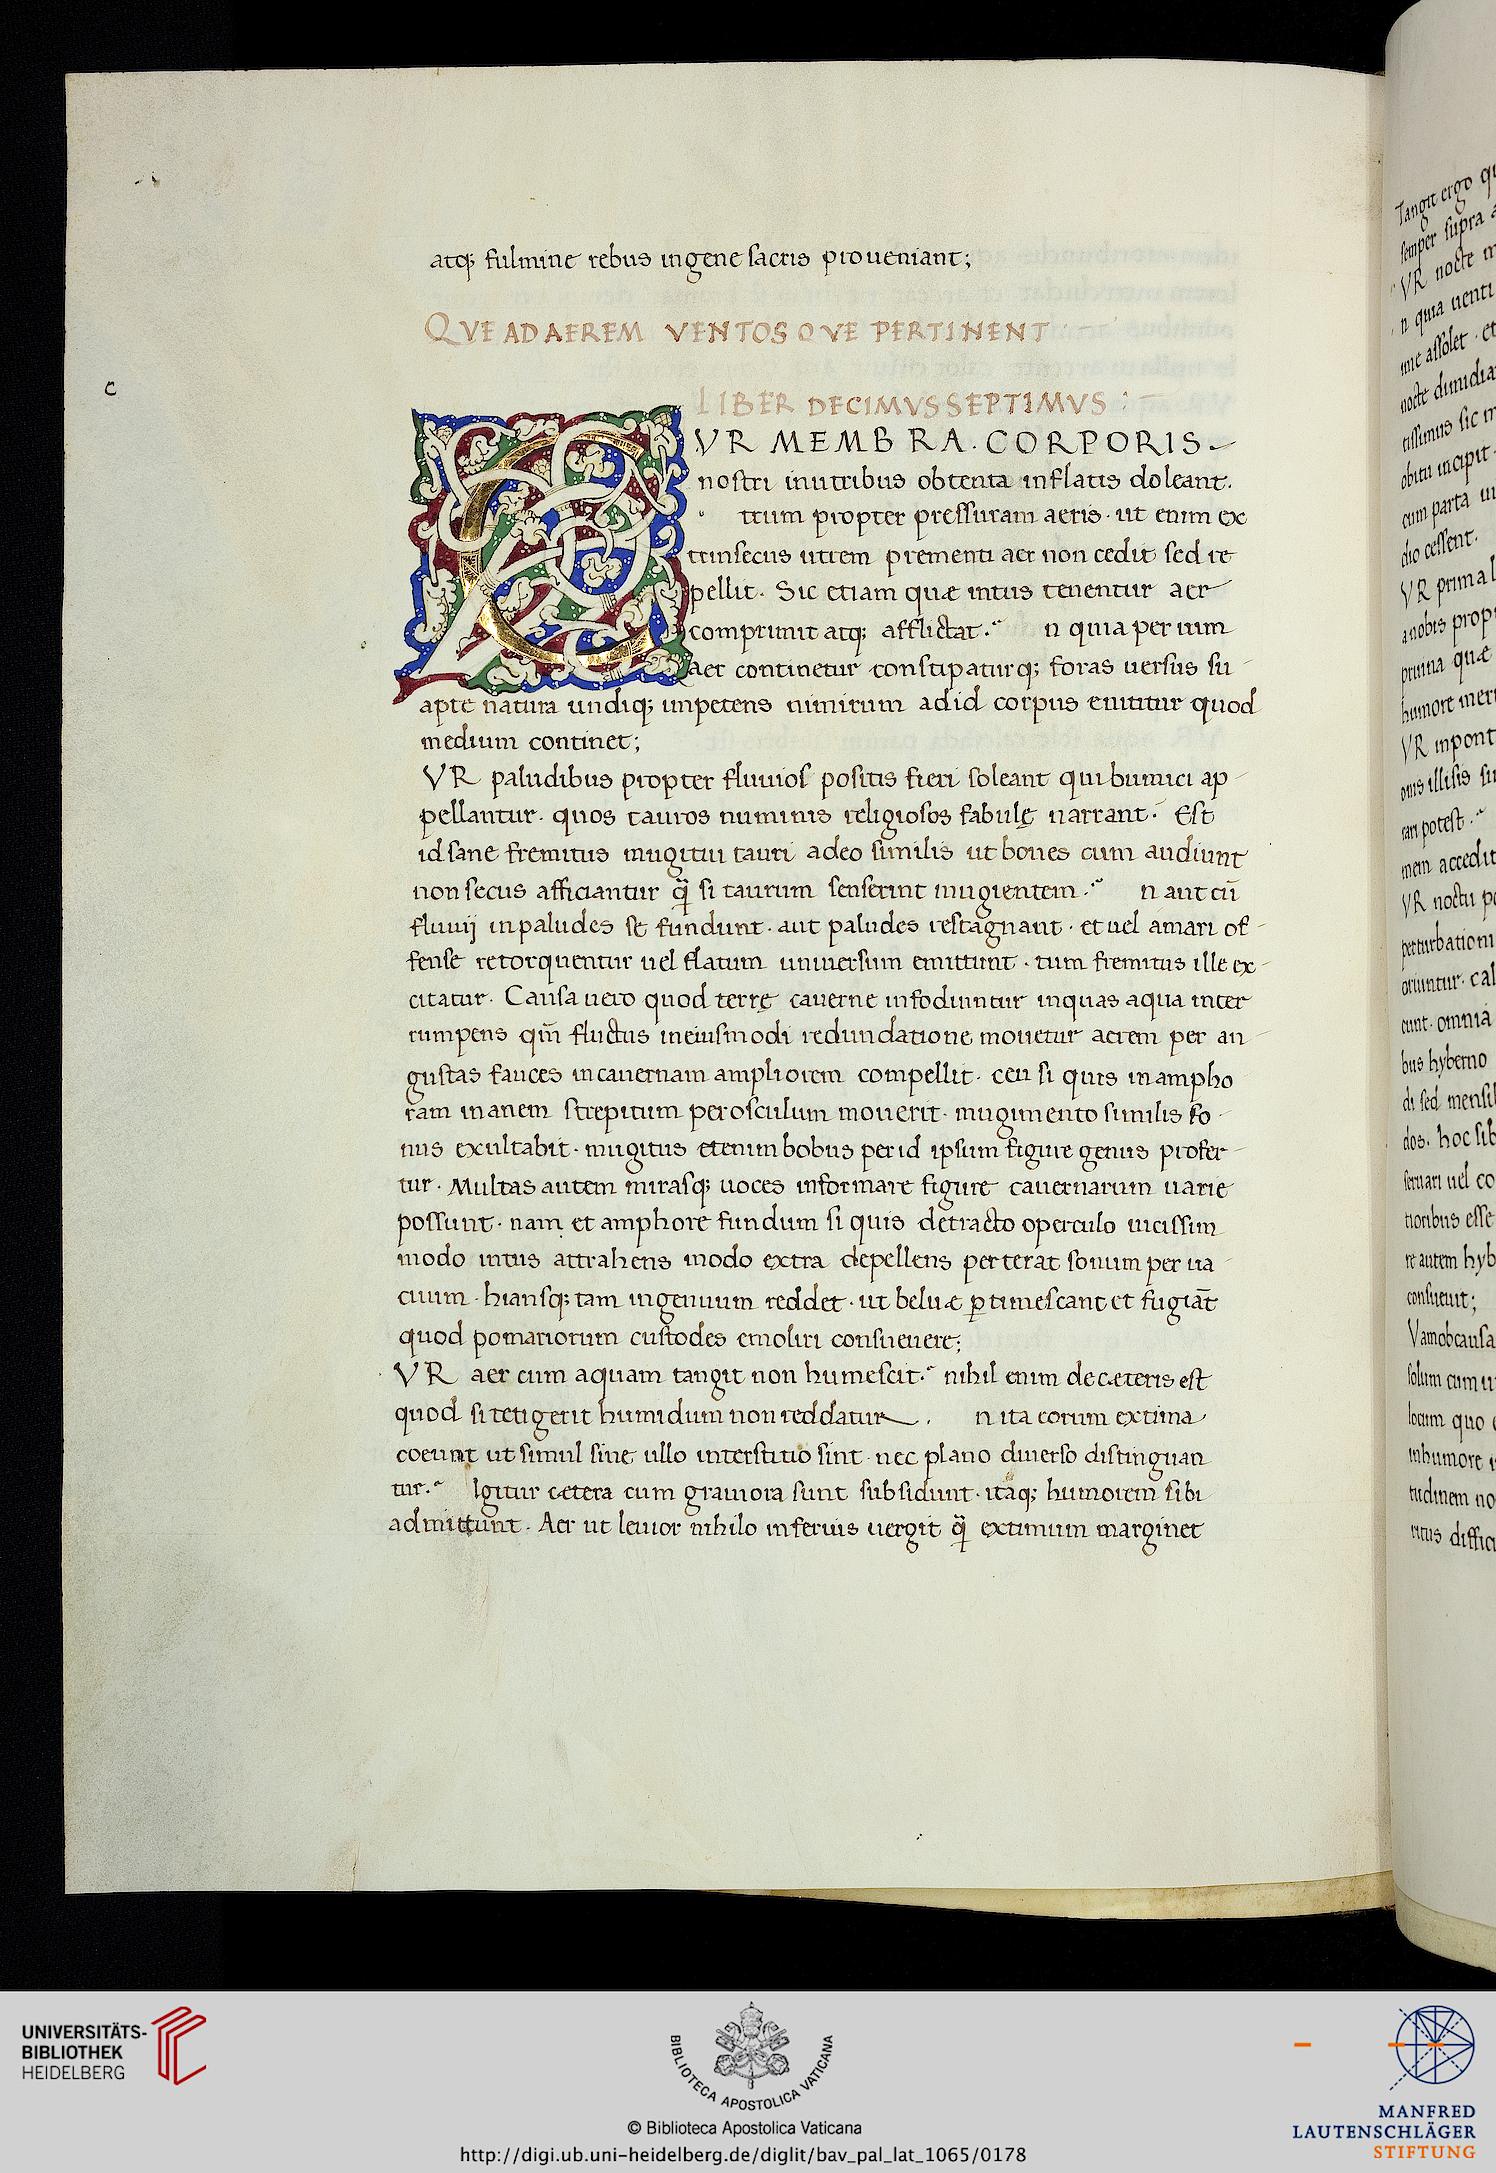 atq; fulmine rebus ingene sacris proueniant;
QVE AD AEREM VENTOSQVE PERTINENT
LIBER DECIMVSSEPTIMVS :
C
VR MEMBRA. CORPORIS
nostri inutribus obtenta inflatis doleant.
trum propter pressuram aeris · ut enim ex
trinsecus utrem prementi aer non cedit sed re
pellit. Sic etiam quæ intus tenentur aer
comprimit atq; afflictat. n quia per uim
aer continetur constipaturq; foras uersus su
apte natura undiq; impetens nimirum adid corpus enititur quod
medium continet;
VR paludibus propter fluuios positis fieri soleant qui bumici ap
pellantur. quos tauros numinis religiosos fabulę narrant. Est
id sane fremitus mugitui tauri adeo similis ut boues cum audiunt
non secus afficiantur q̃ si taurum senserint mugientem. n aut cũ
fluuij inpaludes se fundunt. aut paludes restagnant. et uel amari of
fense retorquentur uel flatum uniuersum emittunt. tum fremitus ille ex
citatur. Causa uero quod terrę cauerne infodiuntur inquas aqua inter
rumpens qm̃ fluctus ineiusmodi redundatione mouetur aerem per an
gustas fauces incauernam ampliorem compellit. ceu si quis in ampho
ram inanem strepitum perosculum mouerit. mugimento similis so
nus exultabit. mugitus etenim bobus perid ipsum figure genus profer
tur. Multas autem mirasq; uoces informare figure cauernarum uarie
possunt. nam et amphore fundum si quis detracto operculo uicissim
modo intus attrahens modo extra depellens perterat sonum per ua
cuum. hiansq; tam ingenuum reddet. ut beluæ ptimescant et fugiãt
quod pomariorum custodes emoliri consueuere;
VR aer cum aquam tangit non humescit. nihil enim de cæteris est
quod si tetigerit humidum non reddatur. n ita eorum extima
coeunt ut simul sine ullo interstitio sint. nec plano diuerso distinguan
tur. Igitur cætera cum grauiora sunt subsidunt. itaq; humorem sibi
admittunt. Aer ut leuior nihilo inferius uergit q̃ extimum marginet
c
Tangit ergo
semper supra
VR nocte
n quia uenti
ime assolet. et
nocte dimidia
tissimus sic
obitu incipit
cum parta
dio cessent.
VR prima
a nobis
pruina quæ
humore
VR inpont
onis illisis
rari potest.
mem accedit
VR noctu
perturbationi
oriuntur. cal
cunt. omnia
bus hyberno
di sed mensi
dos. hoc sib
seruari uel co
tioribus esse
re autem hyb
consueuit;
Vamobcausa
solum cum
locum quo
inhumore
tudinem no
ritus diffici
UNIVERSITÄTS-
BIBLIOTHEK
HEIDELBERG
BIBLIOTECA APOSTOLICA VATICANA
© Biblioteca Apostolica Vaticana
http://digi.ub.uni-heidelberg.de/diglit/bav_pal_lat_1065/0178
MANFRED
LAUTENSCHLÄGER
STIFTUNG